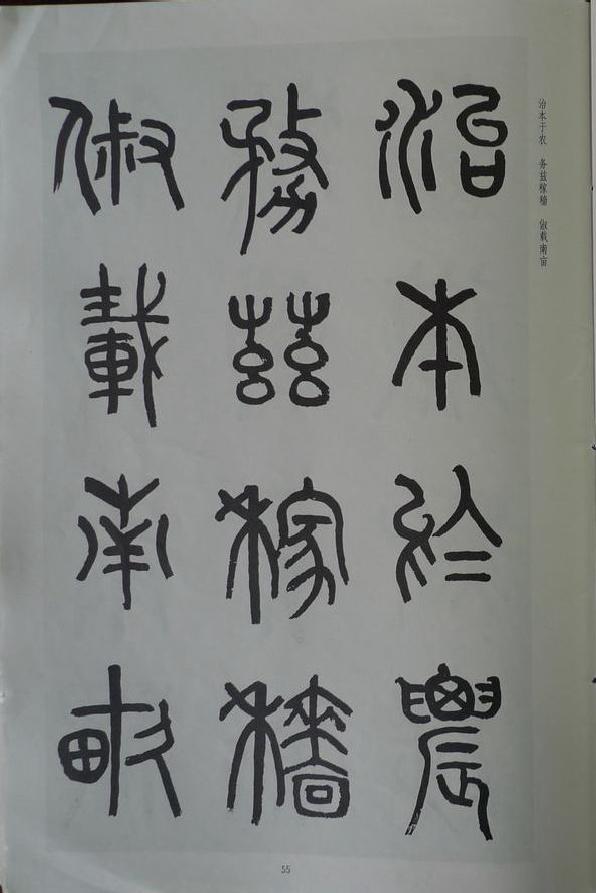 治本於農
務茲稼穡
俶載南畝
治本于农　务兹稼穑　俶载南亩
55